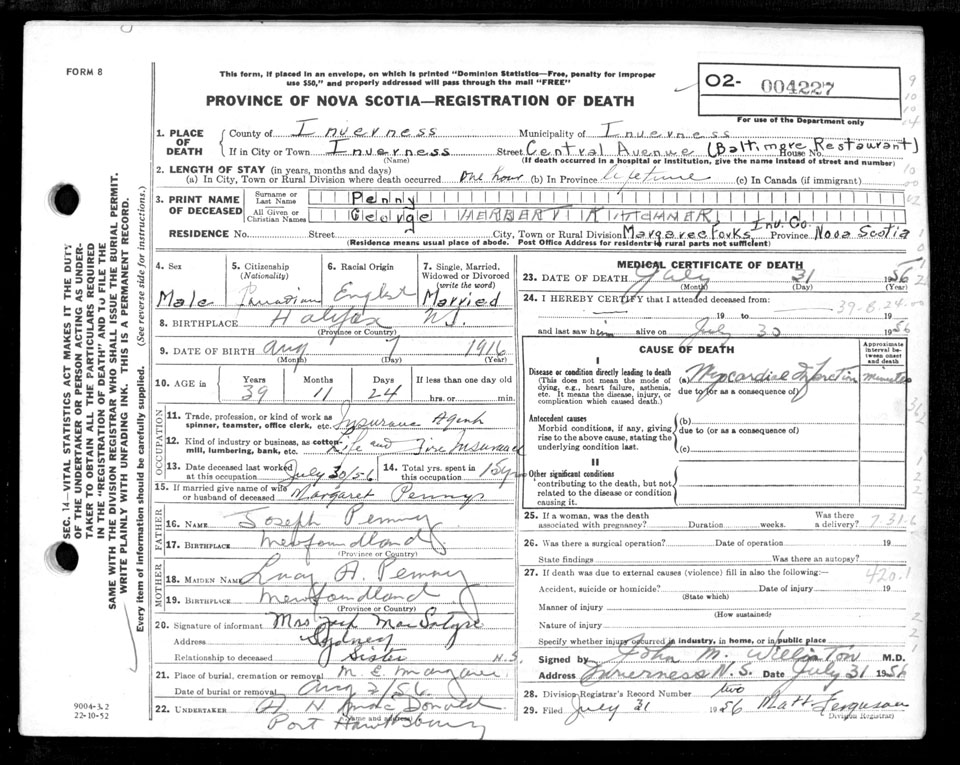 FORM 8
This form, if placed in an envelope, on which is printed "Dominion Statistics—Free, penalty for improper
use $50," and properly addressed will pass through the mail "FREE"
O2- 004227
For use of the Department only
PROVINCE OF NOVA SCOTIA—REGISTRATION OF DEATH
1. PLACE OF DEATH { County of Inverness Municipality of Inverness
If in City or Town Inverness Street Central Avenue (Baltimore Restaurant) House No.
(Name) (If death occurred in a hospital or institution, give the name instead of street and number)
2. LENGTH OF STAY (in years, months and days)
(a) In City, Town or Rural Division where death occurred One hour (b) In Province lifetime (c) In Canada (if immigrant)
3. PRINT NAME OF DECEASED { Surname or Last Name Penny
All Given or Christian Names George HERBERT KITCHNER
RESIDENCE No. Street City, Town or Rural Division Margaree Forks Inv. Co. Province Nova Scotia
(Residence means usual place of abode. Post Office Address for residents in rural parts not sufficient)
4. Sex Male
5. Citizenship (Nationality)
6. Racial Origin English
7. Single, Married, Widowed or Divorced (write the word) Married
8. BIRTHPLACE Halifax N.S.
(Province or Country)
9. DATE OF BIRTH Aug 7 1916
(Month) (Day) (Year)
10. AGE in Years 39 Months 11 Days 24 If less than one day old hrs. or min.
OCCUPATION
11. Trade, profession, or kind of work as spinner, teamster, office clerk, etc. Insurance Agent
12. Kind of industry or business, as cotton-mill, lumbering, bank, etc. Life and Fire Insurance
13. Date deceased last worked at this occupation July 30/56
14. Total yrs. spent in this occupation
15. If married give name of wife or husband of deceased Margaret Penny
FATHER
16. NAME Joseph Penny
17. BIRTHPLACE Newfoundland
(Province or Country)
MOTHER
18. MAIDEN NAME Lucy A. Penny
19. BIRTHPLACE Newfoundland
(Province or Country)
20. Signature of informant Mrs Jack
Address Sydney
Relationship to deceased Sister N.S.
21. Place of burial, cremation or removal N E Margaree
Date of burial or removal Aug 2/56
22. UNDERTAKER Donald
(Name and address) Port Hawkesbury
9004-3.2
22-10-52
SEC. 14—VITAL STATISTICS ACT MAKES IT THE DUTY
OF THE UNDERTAKER OR PERSON ACTING AS UNDER-
TAKER TO OBTAIN ALL THE PARTICULARS REQUIRED
IN THE "REGISTRATION OF DEATH" AND TO FILE THE
SAME WITH THE DIVISION REGISTRAR WHO SHALL ISSUE THE BURIAL PERMIT.
WRITE PLAINLY WITH UNFADING INK. THIS IS A PERMANENT RECORD.
Every item of information should be carefully supplied. (See reverse side for instructions.)
MEDICAL CERTIFICATE OF DEATH
23. DATE OF DEATH July 31 1956
(Month) (Day) (Year)
24. I HEREBY CERTIFY that I attended deceased from:
19 to 19
39-6-24
and last saw him alive on July 30 1956
CAUSE OF DEATH
Approximate interval between onset and death
I
Disease or condition directly leading to death (a) Myocardial Infarction minutes
(This does not mean the mode of dying, e.g., heart failure, asthenia, etc. It means the disease, injury, or complication which caused death.)
due to (or as a consequence of)
Antecedent causes (b)
Morbid conditions, if any, giving rise to the above cause, stating the underlying condition last.
due to (or as a consequence of)
(c)
II
Other significant conditions
contributing to the death, but not related to the disease or condition causing it.
25. If a woman, was the death associated with pregnancy? Duration weeks. Was there a delivery?
7.31.6
26. Was there a surgical operation? Date of operation 19
State findings Was there an autopsy?
27. If death was due to external causes (violence) fill in also the following:—
420.1
Accident, suicide or homicide? Date of injury 19
(State which)
Manner of injury
(How sustained)
Nature of injury
Specify whether injury occurred in industry, in home, or in public place
Signed by John M. Williston M.D.
Address Inverness N.S. Date July 31 1956
28. Division Registrar's Record Number two
29. Filed July 31 1956 Matt Ferguson
Division Registrar